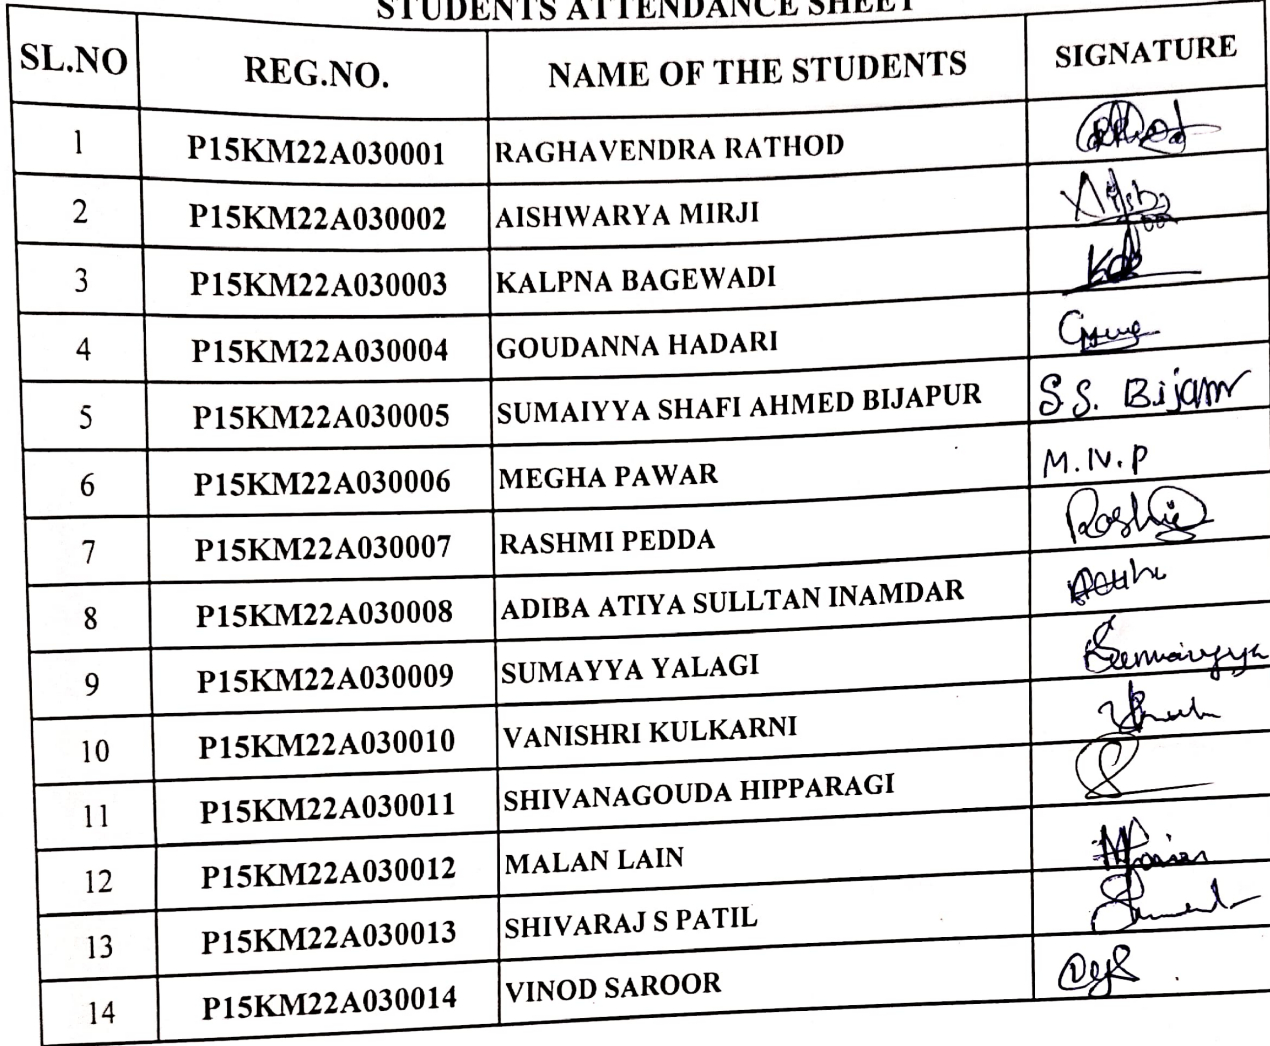 STUDENTS ATTENDANCE SHEET
SL.NO REG.NO. NAME OF THE STUDENTS SIGNATURE
1 P15KM22A030001 RAGHAVENDRA RATHOD
2 P15KM22A030002 AISHWARYA MIRJI
3 P15KM22A030003 KALPNA BAGEWADI
4 P15KM22A030004 GOUDANNA HADARI
5 P15KM22A030005 SUMAIYYA SHAFI AHMED BIJAPUR S.S. Bijapur
6 P15KM22A030006 MEGHA PAWAR M.N.P
7 P15KM22A030007 RASHMI PEDDA
8 P15KM22A030008 ADIBA ATIYA SULLTAN INAMDAR
9 P15KM22A030009 SUMAYYA YALAGI
10 P15KM22A030010 VANISHRI KULKARNI
11 P15KM22A030011 SHIVANAGOUDA HIPPARAGI
12 P15KM22A030012 MALAN LAIN
13 P15KM22A030013 SHIVARAJ S PATIL
14 P15KM22A030014 VINOD SAROOR